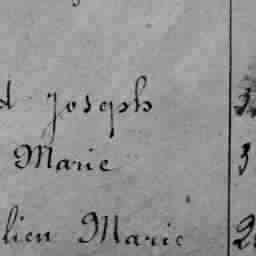 d Joseph 3
Marie 3
lien Marie 2